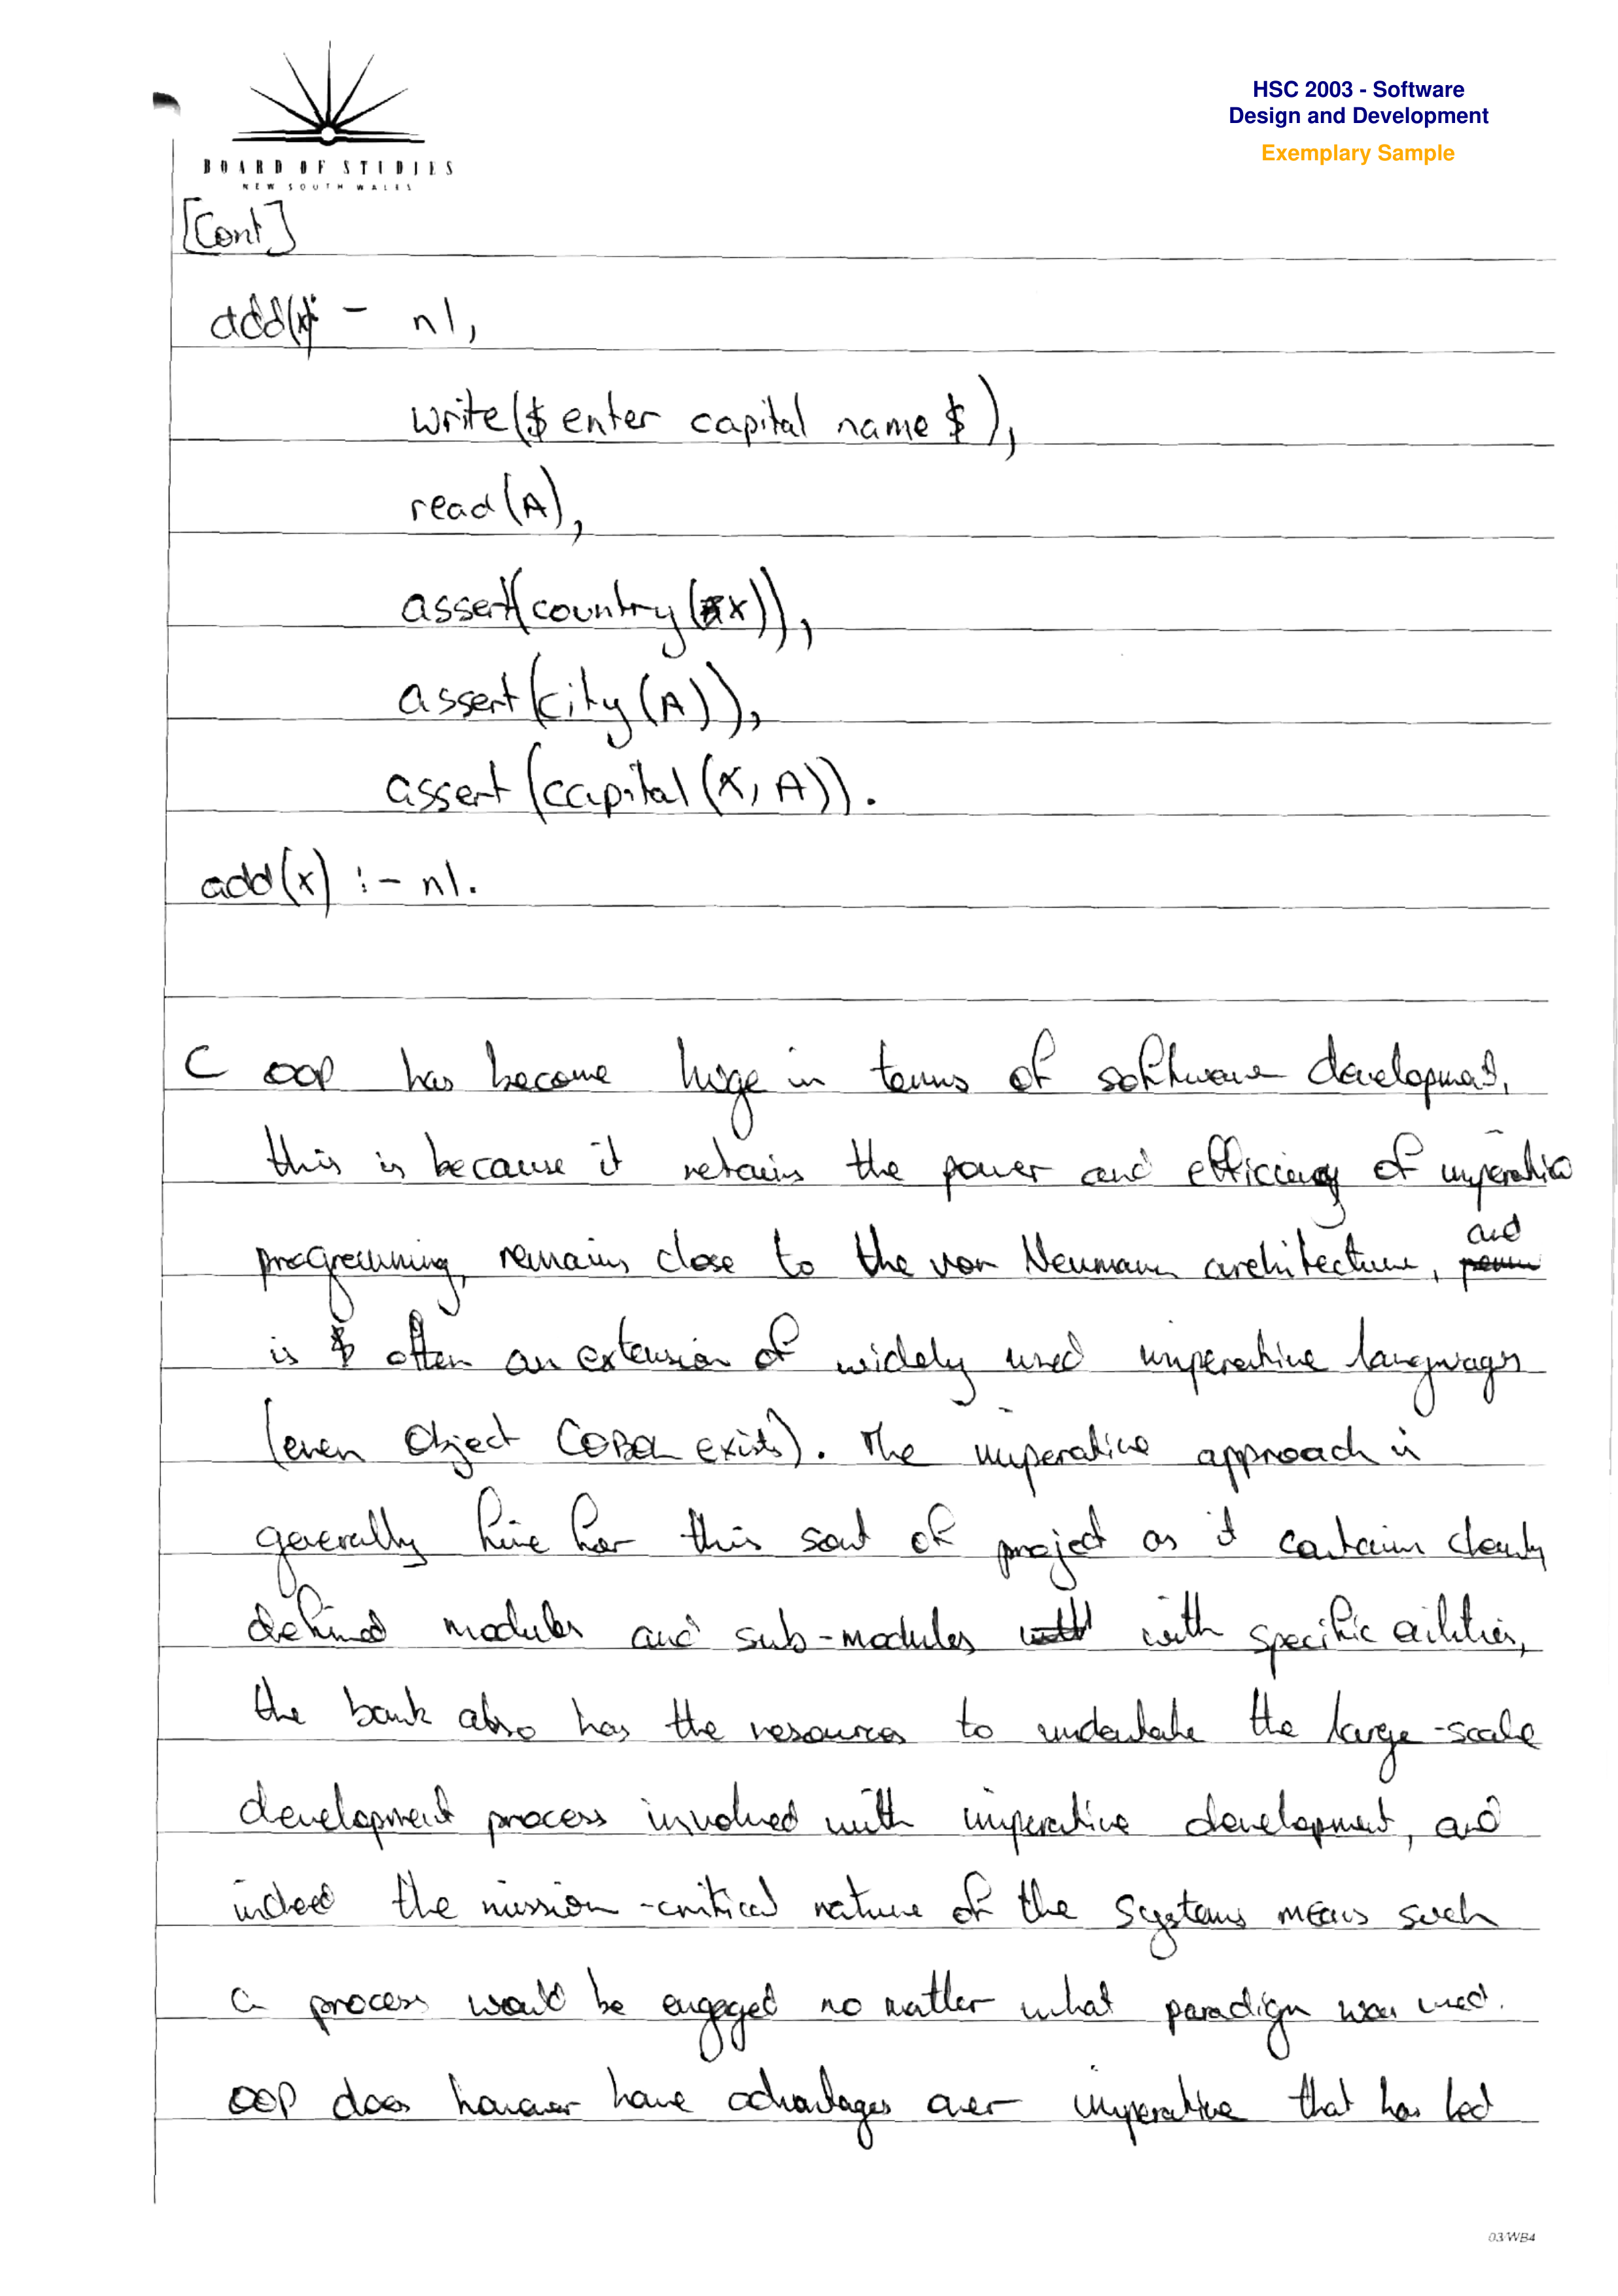 BOARD OF STUDIES
NEW SOUTH WALES
HSC 2003 - Software
Design and Development
Exemplary Sample
[Cont]
add(x) :- nl,
write($ enter capital name $),
read(A),
assert(country(x)),
assert(city(A)),
assert(capital(X, A)).
add(x) :- nl.
C OOP has become huge in terms of software development,
this is because it retains the power and efficiency of imperative
programming, remains close to the von Neumann architecture, and
is often an extension of widely used imperative languages
(even Object COBOL exists). The imperative approach is
generally fine for this sort of project as it contains clearly
defined modules and sub-modules with specific
the bank also has the resources to undertake the large-scale
development process involved with imperative development, and
indeed the mission-critical nature of the systems means such
a process would be engaged no matter what paradigm was used.
OOP does however have advantages over imperative that has led
03/WB4